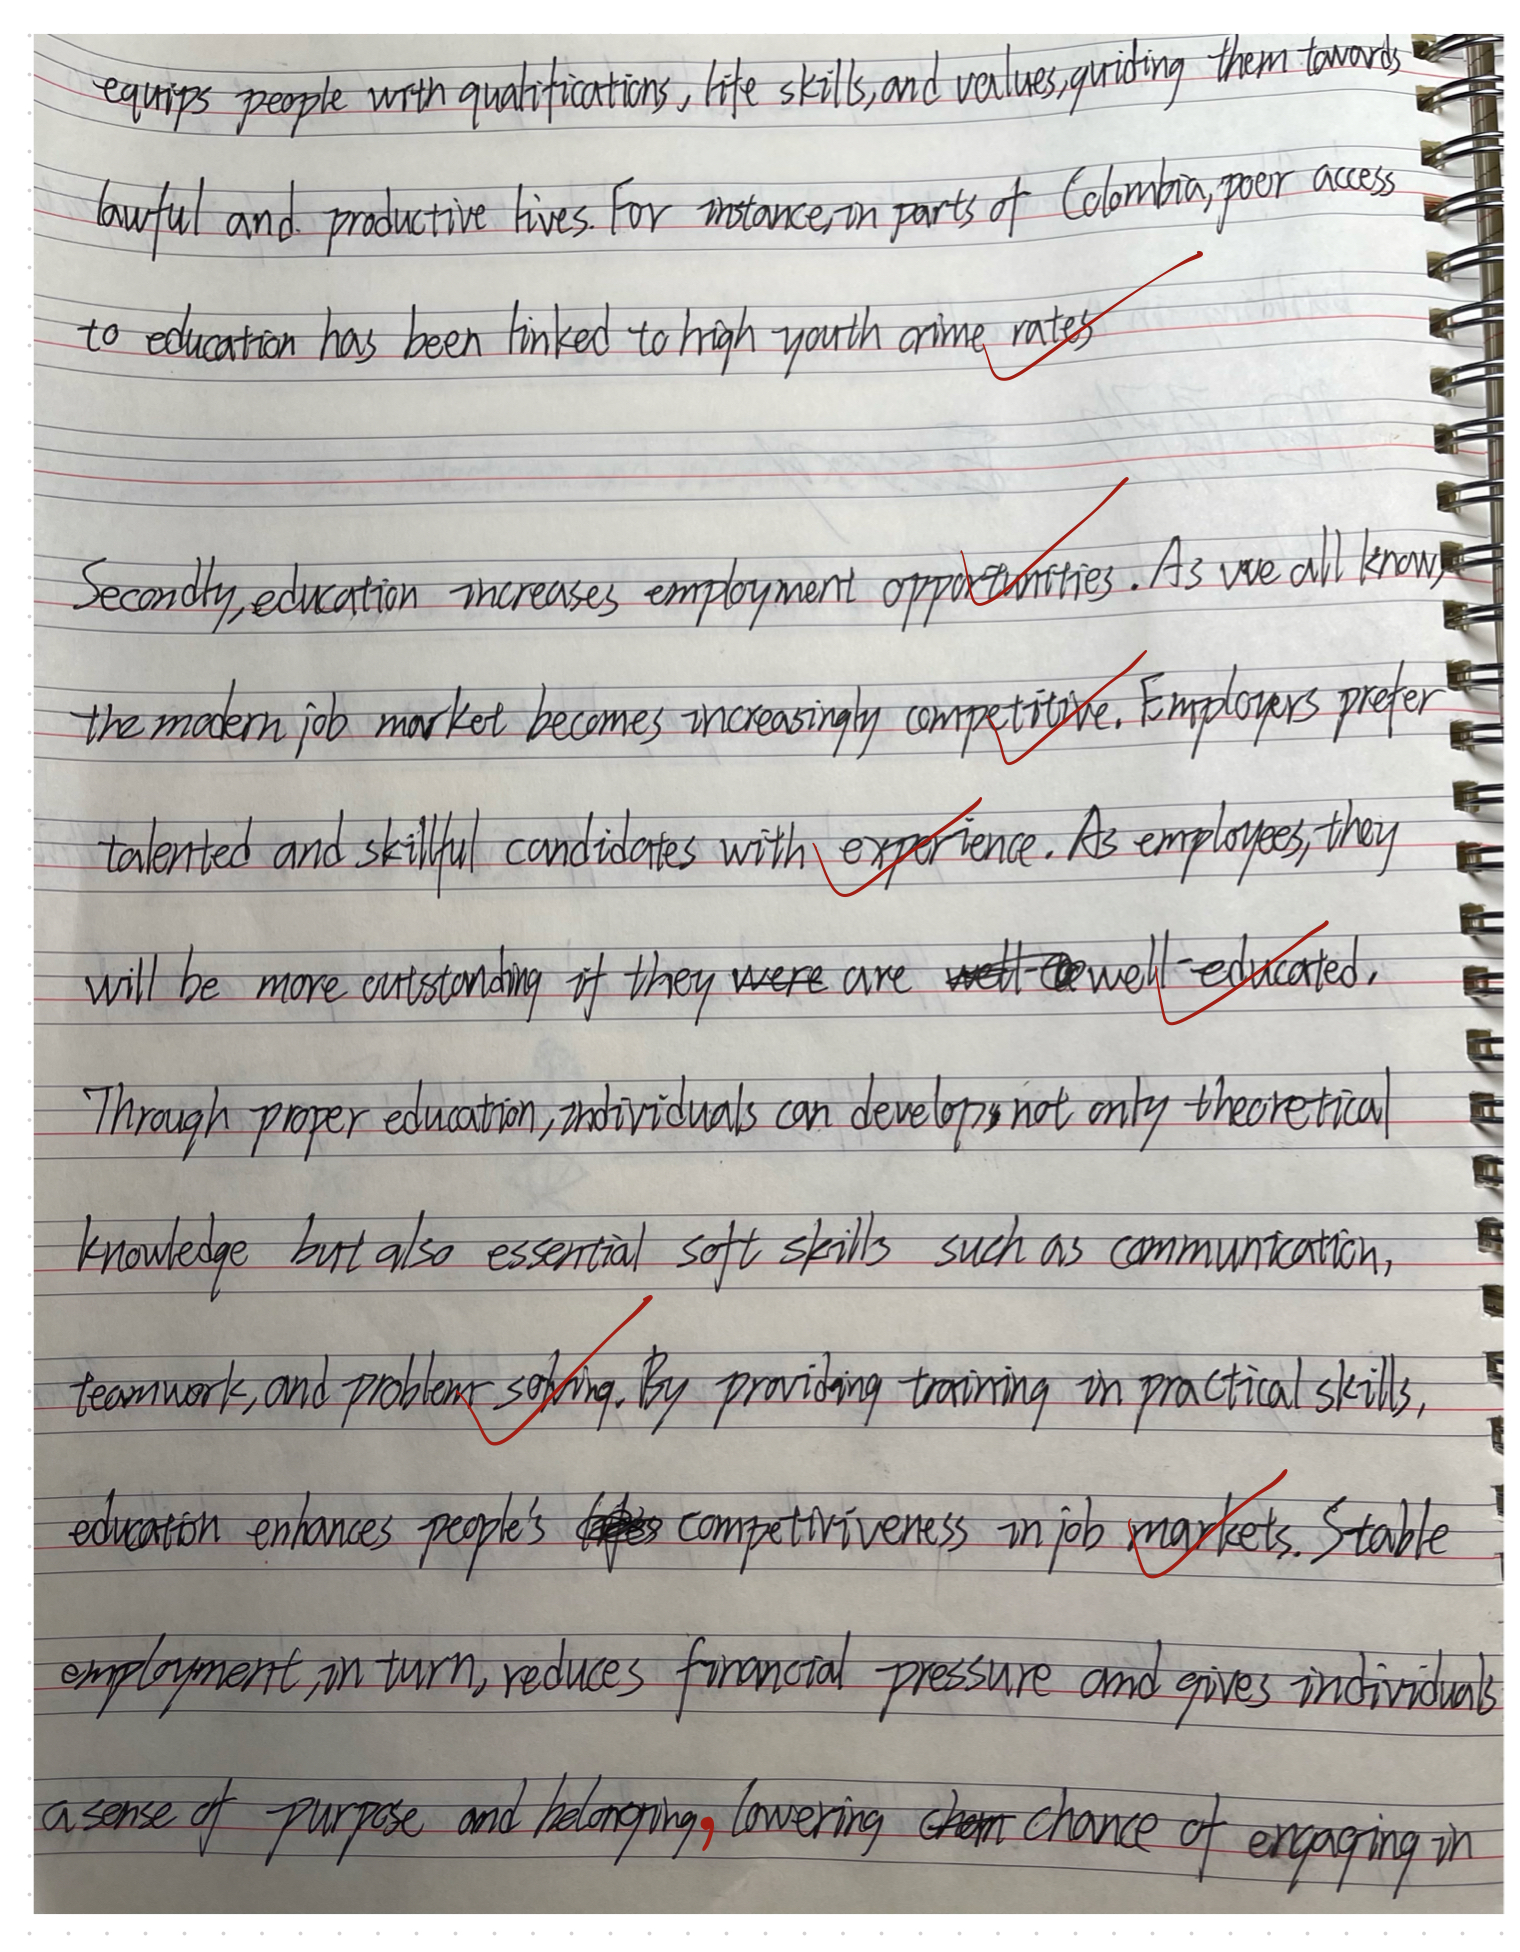 equips people with qualifications, life skills, and values, guiding them towards
lawful and productive lives. For instance, in parts of Colombia, poor access
to education has been linked to high youth crime rates
Secondly, education increases employment opportunities. As we all know,
the modern job market becomes increasingly competitive. Employers prefer
talented and skillful candidates with experience. As employees, they
will be more outstanding if they were are well-educated.
Through proper education, individuals can develop, not only theoretical
knowledge but also essential soft skills such as communication,
teamwork, and problem solving. By providing training in practical skills,
education enhances people's competitiveness in job markets. Stable
employment, in turn, reduces financial pressure and gives individuals
a sense of purpose and belonging, lowering chance of engaging in